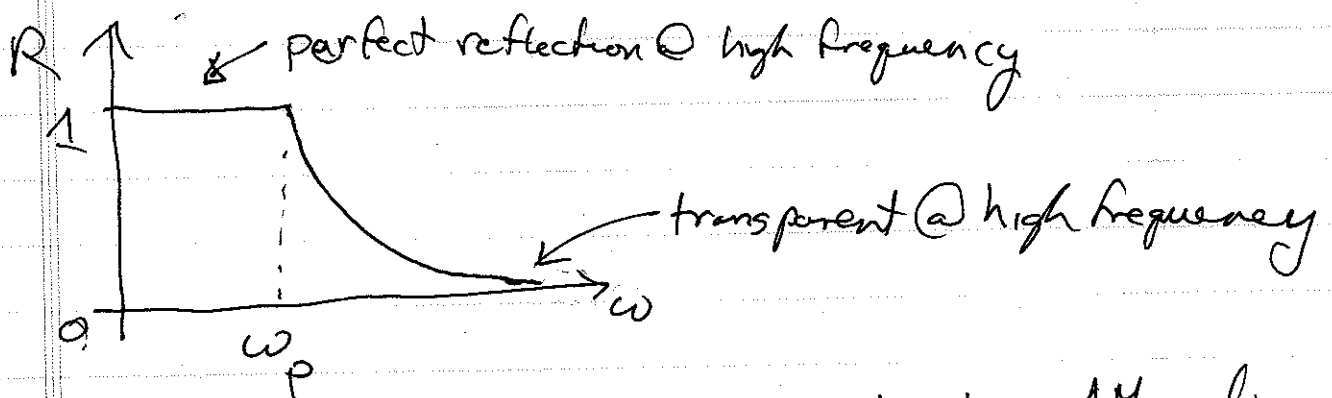 R
perfect reflection @ high frequency
1
transparent @ high frequency
0
ω
ωp